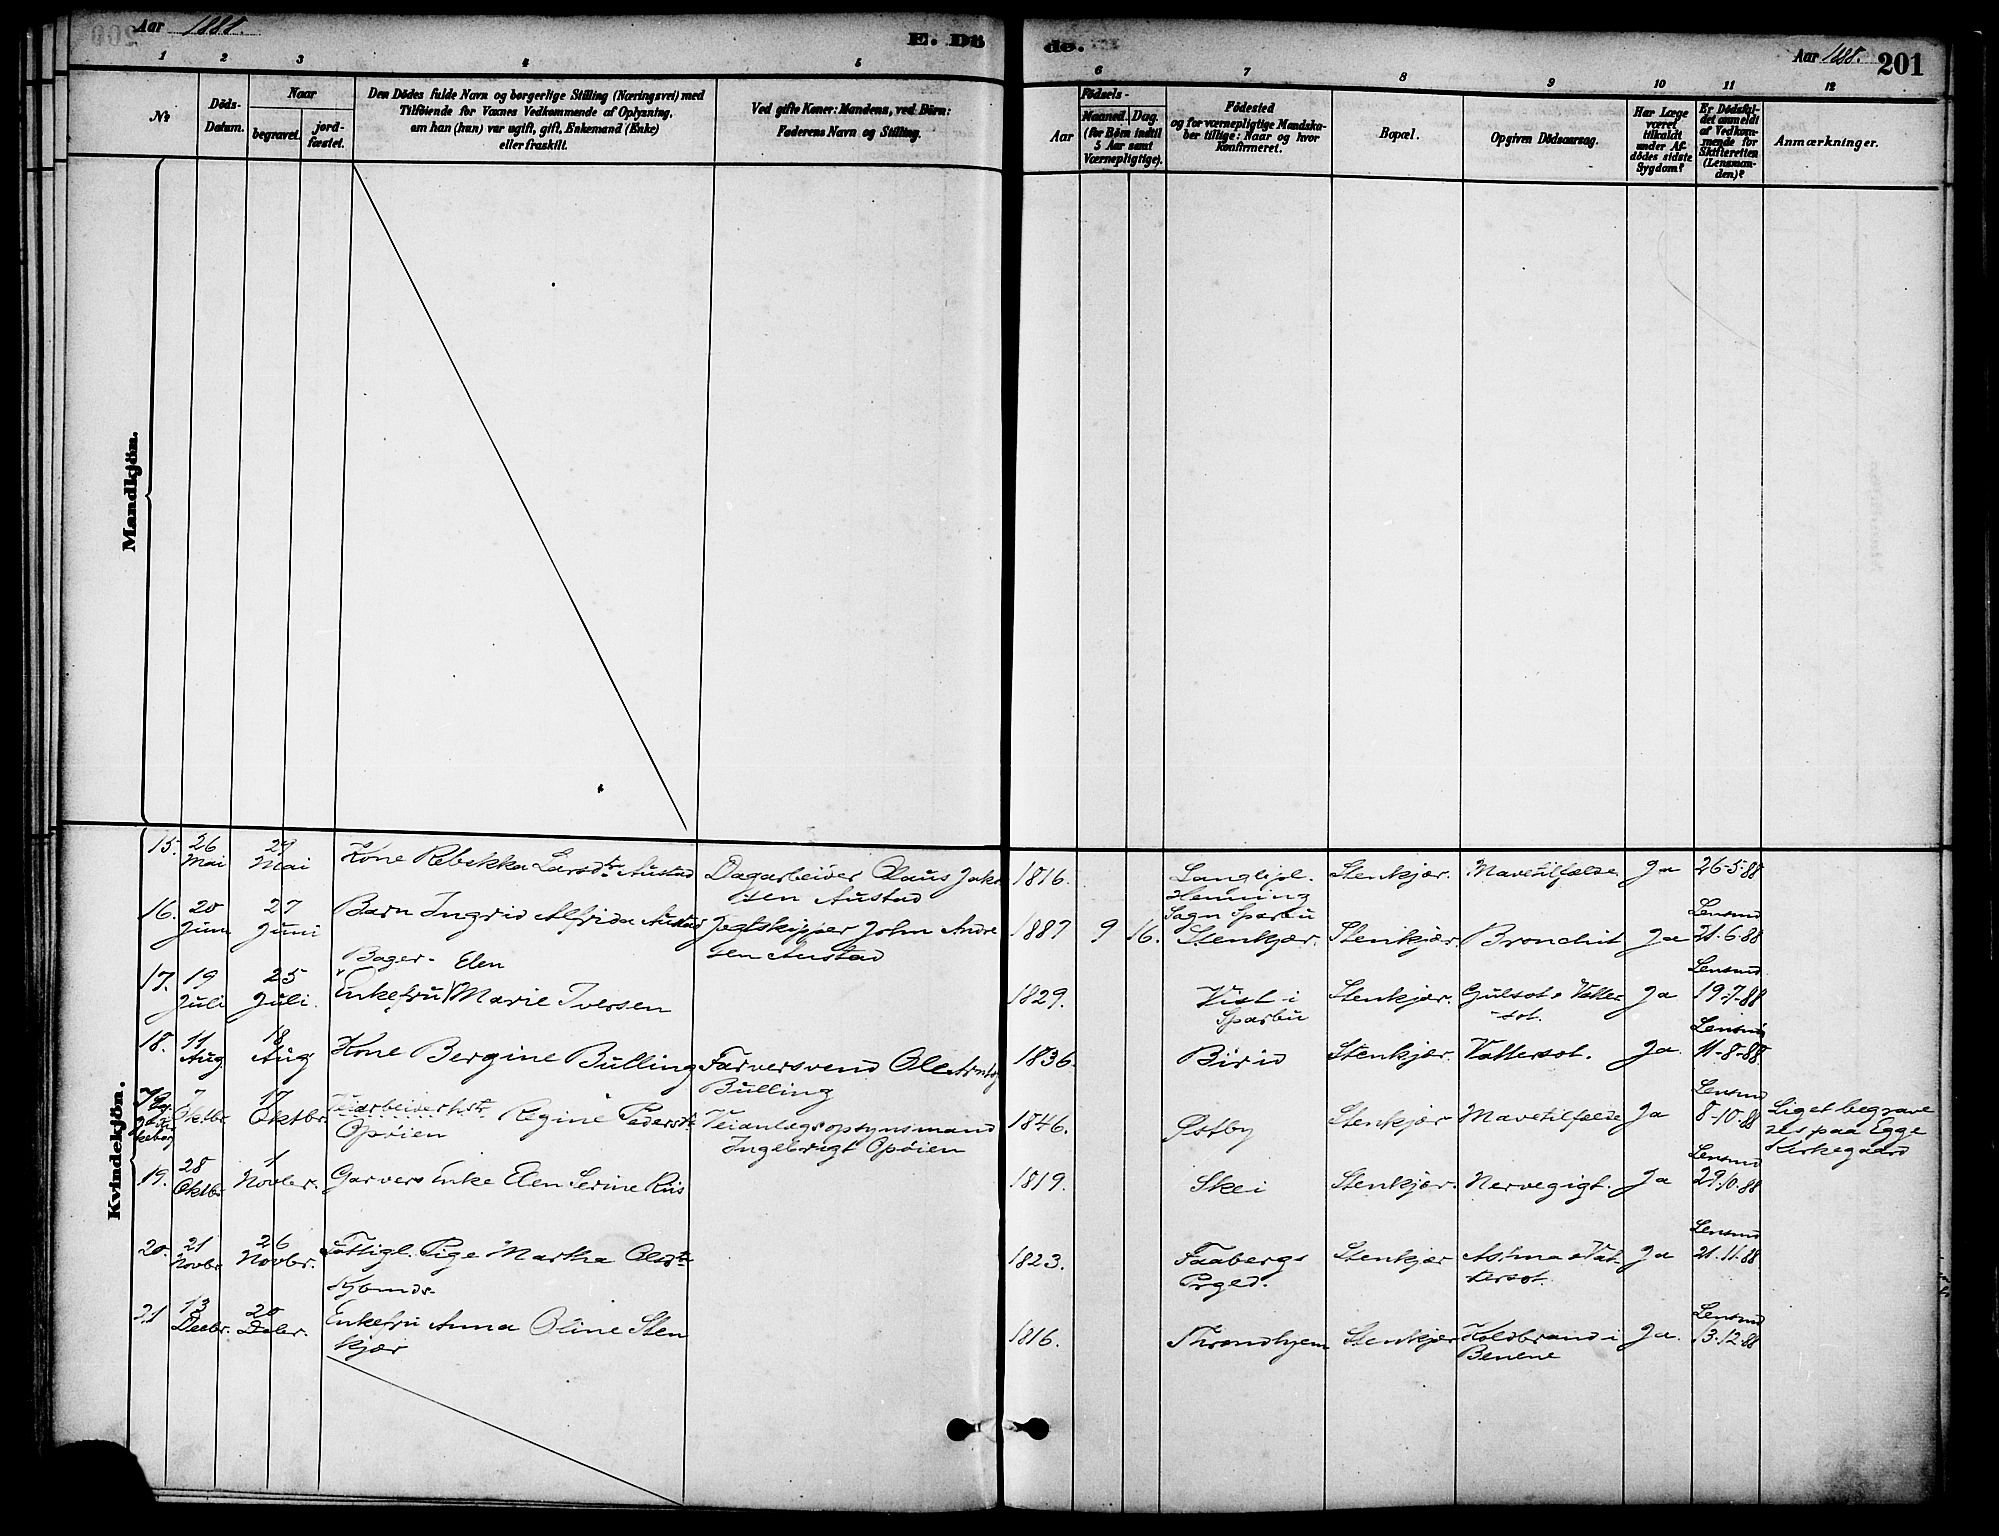 Aar 1888.
E. Dö
de.
Aar 1888. 201
1 2 3 4 5
6 7 8 9 10 11 12
Nr
Döds-
Datum.
Naar
begravet.
jord-
fæstet.
Den Dödes fulde Navn og borgerlige Stilling (Næringsvei) med
Tilföiende for Voxnes Vedkommende af Oplysning,
om han (hun) var ugift, gift, Enkemand (Enke)
eller fraskilt.
Ved gifte Koner: Mandens, ved Börn:
Faderens Navn og Stilling.
Födsels-
Aar
Maaned. Dag.
(for Børn indtil
5 Aar samt
Værnepligtige).
Födested
og for værnepligtige Mandska-
ber tillige: Naar og hvor
konfirmeret.
Bopæl.
Opgiven Dödsaarsag.
Har Læge
været
tilkaldt
under Af-
dødes sidste
Sygdom?
Er Dödsfal-
det anmeldt
af Vedkom-
mende for
Skifteretten
(Lensman-
den)?
Anmærkninger.
Mandkjön.
Kvindekjön.
15. 26 Mai 29 Mai Kone Rebekka Larsdtr Austad Dagarbeider Olaus Jakob
sen Austad 1816. Langhjel.
Henning
Sogn Sparbu Stenkjær. Mavetilfælde Ja 26-5-88
16. 20 Juni 27 Juni Barn Ingrid Alfrida Austad Jegtskipper John Andre
sen Austad 1887 9 16. Stenkjær. Stenkjær. Bronchit Ja Lensmd
21-6-88
17. 19 Juli 25 Juli. Bager- Elen
Enkefru Marie Iversen 1829. Vist i
Sparbu Stenkjær. Gulsot & Vatter
-sot. Ja Lensmd
19-7-88
18. 11 Aug. 18 Aug Kone Bergine Bulling Farversvend Ole Arntz
Bulling 1836. Birid Stenkjær. Vattersot. Ja. Lensmd
11-8-88
7 Oktbr. 17 Oktbr. Regine Pedersdtr
Opöien Veianlægsopsynsmand
Ingebrigt Opöien 1846. Østby Stenkjær Mavetilfælde Ja Lensmd
8-10-88 Liget begrave
des paa Egge
Kirkegaard
19. 28 Oktbr 1 Novbr. Garvers Enke Elen Serine Riis 1819. Skei Stenkjær. Nervegigt. Ja Lensmd
29-10-88
20. 21 Novbr 26 Novbr. Fattigl. Pige Martha Olsdtr 1823. Faabergs
Prged. Stenkjær Astma & Vat-
tersot. Ja Lensmd
21-11-88
21 13 Decbr. 20 Decbr. Enkefru Anna Oline Sten
kjær 1816. Throndhjem Stenkjær Koldbrand i
Benene Ja. Lensmd
13-12-88